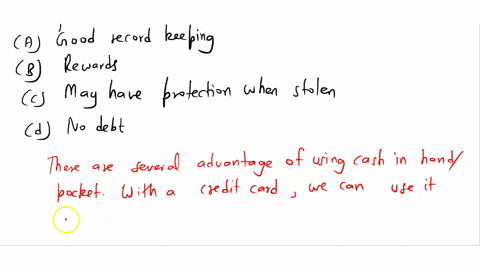 (A) Good record keeping
(B) Rewards
(c) May have protection when stolen
(d) No debt
There are several advantage of using cash in hand/
pocket. With a credit card, we can use it